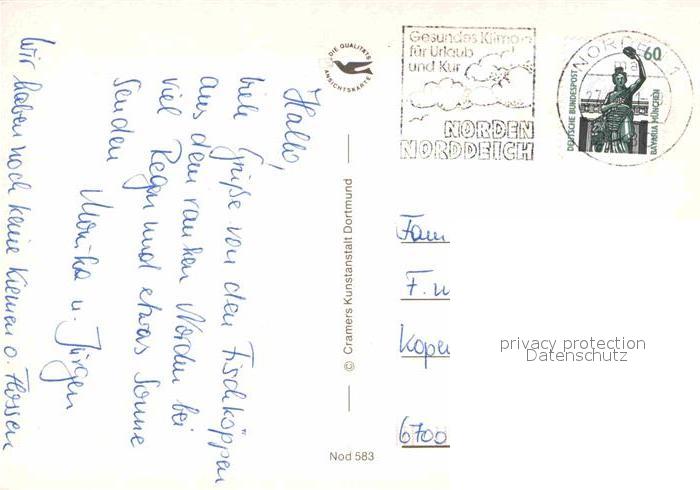 Hallo,
viele Grüße von den Fischköppen
aus dem rauhen Norden bei
viel Regen und etwas Sonne
senden
Monika u. Jürgen
Wir haben noch keine Kiemen o. Flossen
DIE QUALITÄTS
ANSICHTSKARTE
© Cramers Kunstanstalt Dortmund
Nod 583
Gesundes Klima
für Urlaub
und Kur
NORDEN
NORDDEICH
NORDEN 1
ma
27
DEUTSCHE BUNDESPOST
60
BAVARIA MÜNCHEN
Fam
F.
Kope
6700
privacy protection
Datenschutz